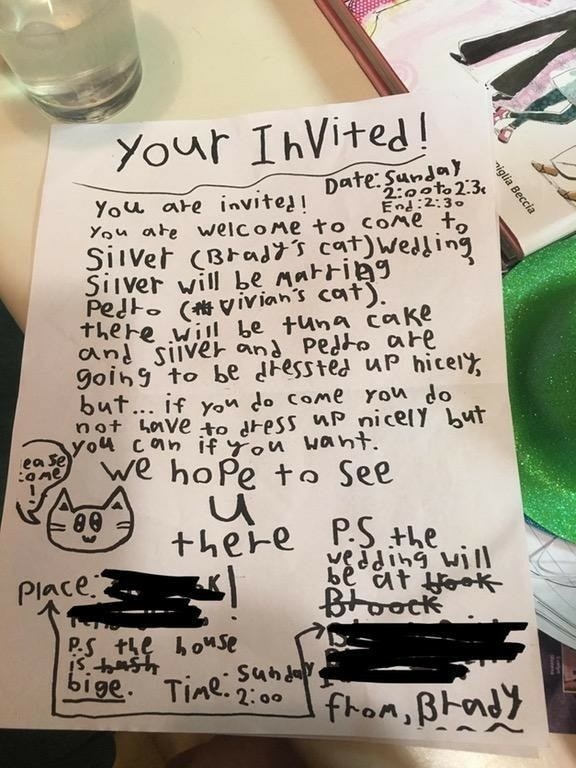 Your Invited!
Date: Sunday
2:00 to 2:3
End: 2:30
You are invited!
You are welcome to come to
Silver (Brady's cat) Wedding,
Silver will be Marring
Pedro (Vivian's cat).
there will be tuna cake
and Silver and Pedro are
going to be dressted up nicely,
but... if you do come you do
not have to dress up nicely but
you can if you want.
We hope to see
u
there
ease
ome
!
Place:
!
P.S the house
is
bige.
Time: Sunday
2:00
P.S the
wedding will
be at
Broock
from, Brady
iglia Beccia